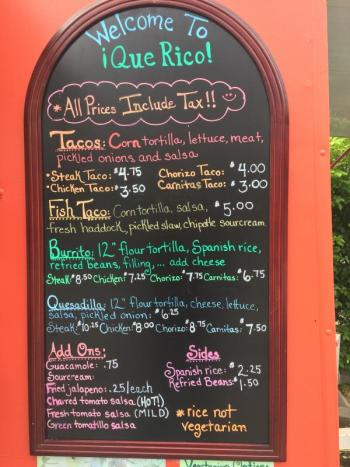 Welcome To
¡Que Rico!
* All Prices Include Tax!!
Tacos: Corn tortilla, lettuce, meat,
pickled onions, and salsa
• Steak Taco: $4.75 Chorizo Taco: $4.00
• Chicken Taco: $3.50 Carnitas Taco: $3.00
Fish Taco: Corn tortilla, salsa, $5.00
fresh haddock, pickled slaw, chipotle sourcream
Burrito: 12" flour tortilla, Spanish rice,
refried beans, filling,... add cheese
Steak $8.50 Chicken: $7.25 Chorizo: $7.75 Carnitas: $6.75
Quesadilla: 12" flour tortilla, cheese, lettuce,
salsa, pickled onion: $6.25
Steak: $10.25 Chicken $8.00 Chorizo: $8.75 Carnitas: $7.50
Add Ons:
Guacamole: .75
Sourcream:
Fried jalapeno: .25/each
Charred tomato salsa (HOT!)
Fresh tomato salsa (MILD)
Green tomatillo salsa
Sides
Spanish rice: $2.25
Refried Beans: $1.50
* rice not
vegetarian